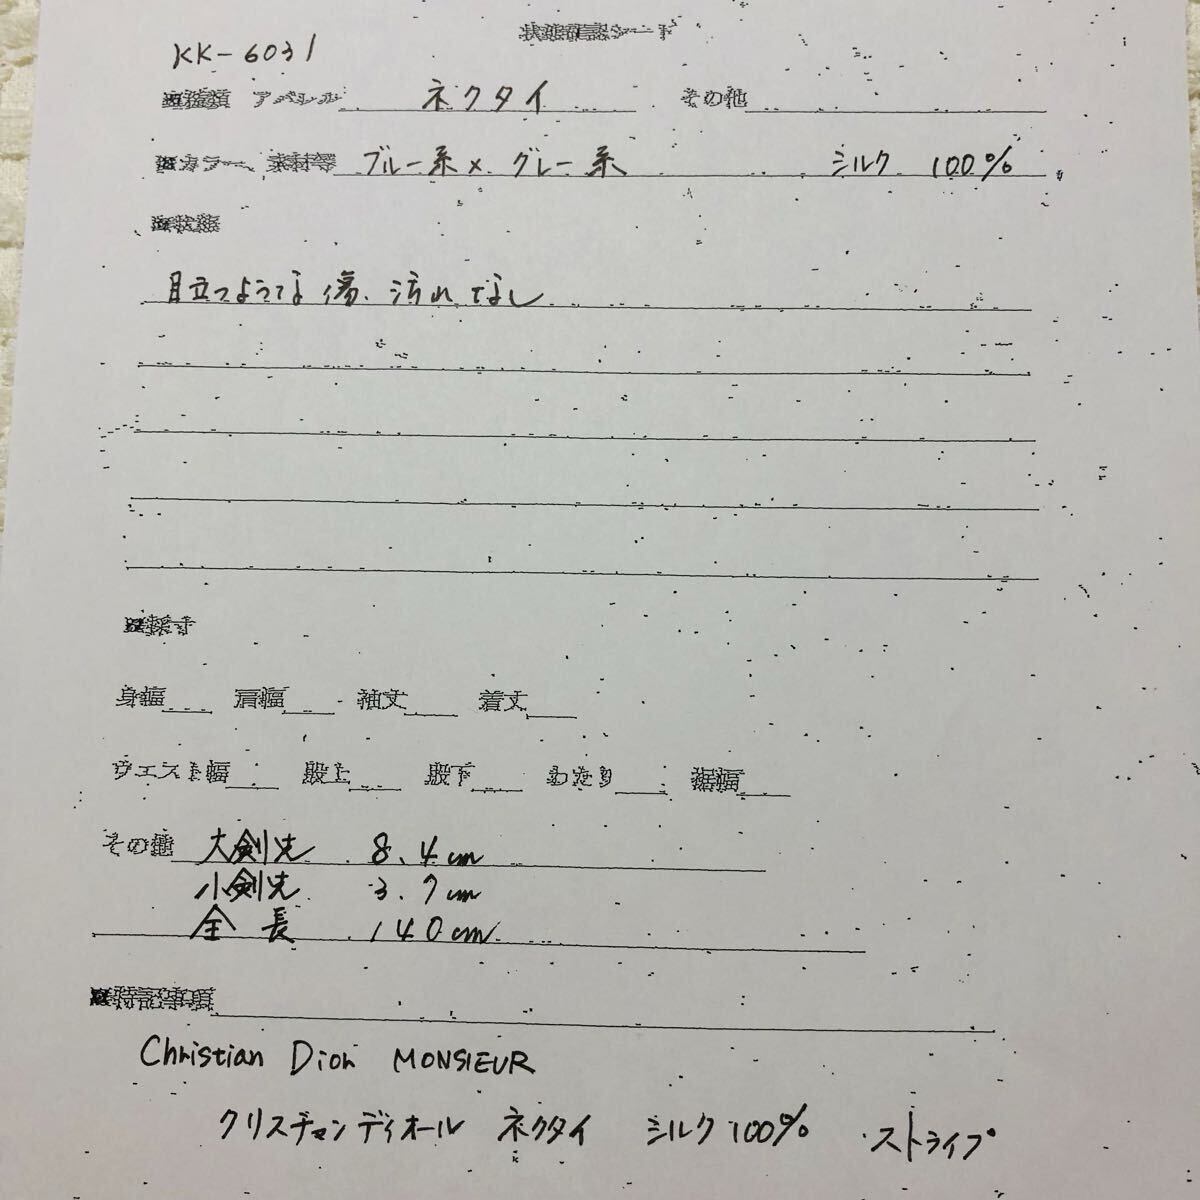 状態確認シート
KK-6031
■種類 アパレル ネクタイ その他
■カラー、素材等 ブルー系×グレー系 シルク 100%
■状態
目立つような傷、汚れなし
■採寸
身幅 肩幅 袖丈 着丈
ウエスト幅 股上 股下 わたり 裾幅
その他 大剣先 8.4cm
小剣先 3.7cm
全長 140cm
■特記事項
Christian Dior MONSIEUR
クリスチャンディオール ネクタイ シルク100% ストライプ